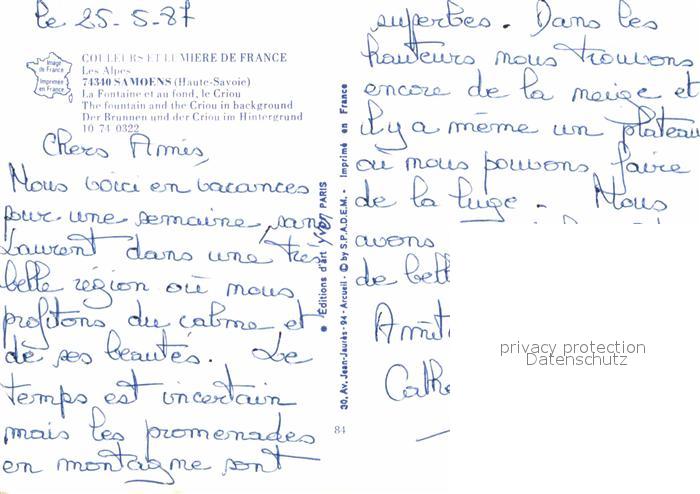 le 25-5-87
Image
de France
Imprimée
en France
COULEURS ET LUMIERE DE FRANCE
Les Alpes
74340 SAMOENS (Haute-Savoie)
La Fontaine et au fond, le Criou
The fountain and the Criou in background
Der Brunnen und der Criou im Hintergrund
10 74 0322
Chers Amis,
Nous voici en vacances
pour une semaine, sans
Laurent dans une très
belle région où nous
profitons du calme et
de ses beautés. Le
temps est incertain
mais les promenades
en montagne sont
Editions d'art yvon PARIS
30, Av. Jean-Jaurès - 94 - Arcueil - © by S.P.A.D.E.M. - Imprimé en France
84
superbes. Dans les
hauteurs nous trouvons
encore de la neige et
il y a même un plateau
où nous pouvons faire
de la luge. Nous
avons
de bell
Amit
Cathe
privacy protection
Datenschutz